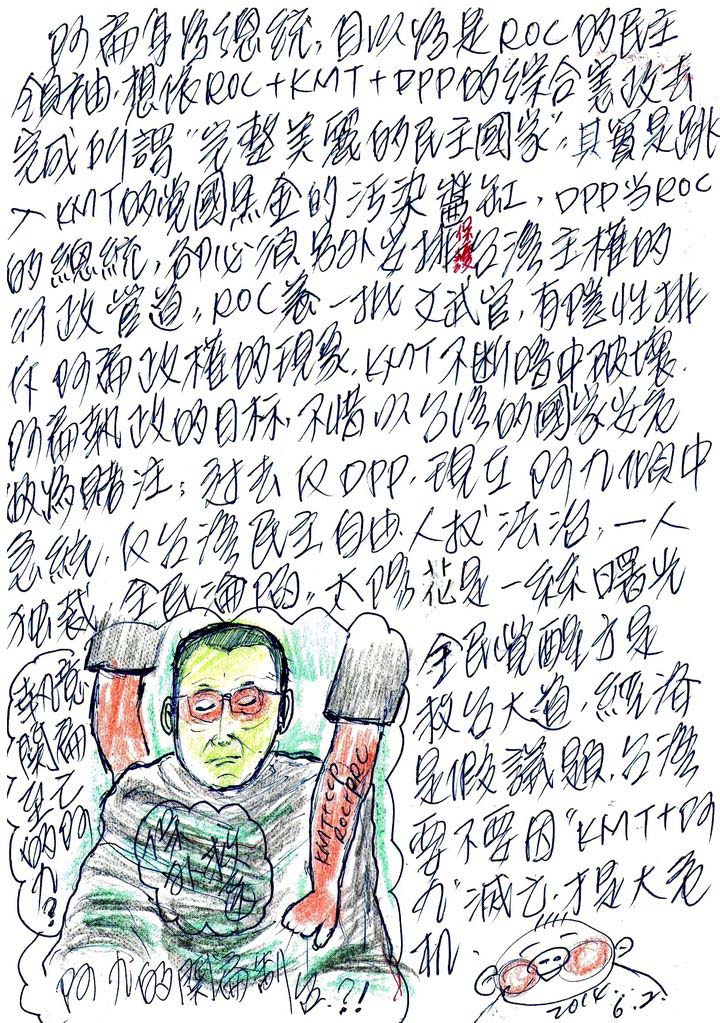 阿扁身為總統，自以為是ROC的民主
領袖，想依ROC+KMT+DPP的綜合憲政去
完成所謂"完整美麗的民主國家"，其實是跳
入KMT的黨國黑金的污染醬缸，DPP当ROC
的總統，卻必須另外安排保護台灣主權的
行政管道，ROC養一批文武官，有隱性排
斥阿扁政權的現象，KMT不斷暗中破壞
阿扁執政的目标，不惜以台湾的國家安危
做為賭注；过去反DPP，現在阿九傾中
急統，反台灣民主自由、人权、法治，一人
独裁，全民淪陷，太陽花是一線曙光
全民覺醒才是
救台大道，經濟
是假議題，台灣
要不要因"KMT+阿
九"滅亡，才是大危
机
執意
關扁
至亡
的阿
九？
KMT+CCP
ROC+PRC
阿九的關扁制台？！
2014.6.2.